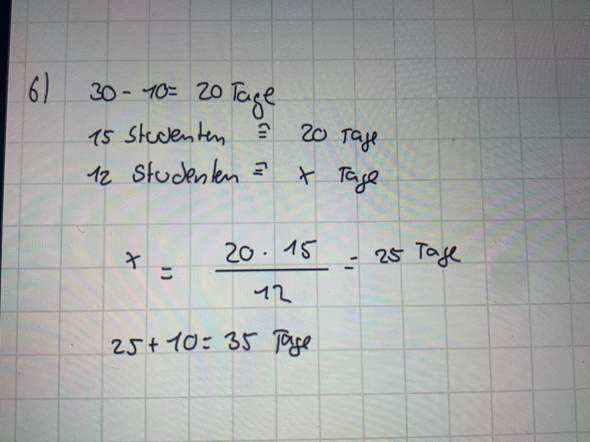 6) 30 - 10 = 20 Tage
15 Studenten ≙ 20 Tage
12 Studenten ≙ x Tage
x = 20 · 15 / 12 = 25 Tage
25 + 10 = 35 Tage